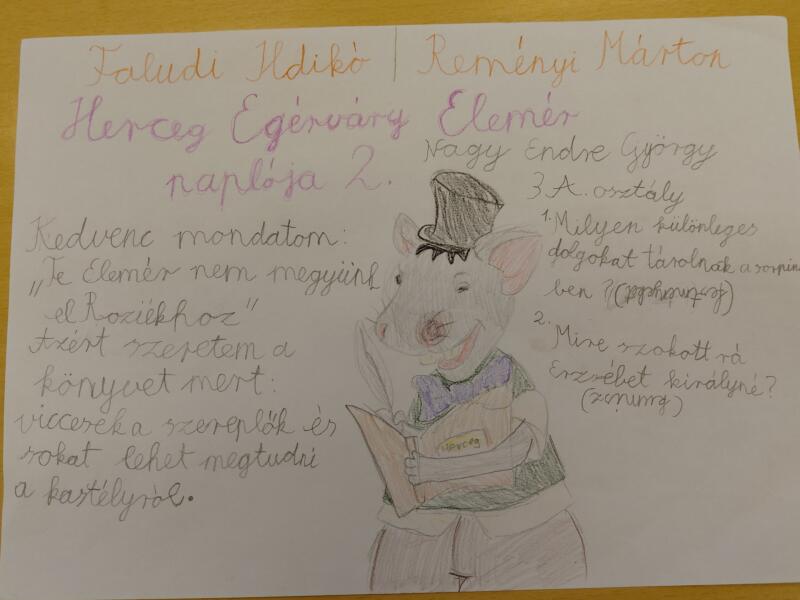 Faludi Ildikó | Reményi Márton
Herceg Egérváry Elemér
naplója 2.
Nagy Endre György
3.A. osztály
Kedvenc mondatom:
„Te Elemér nem megyünk
el Roziékhoz"
Azért szeretem a
könyvet mert:
viccesek a szereplők és
sokat lehet megtudni
a kastélyról.
1. Milyen különleges
dolgokat tárolnak a
ben?
2. Mire szokott rá
Erzsébet királyné?
Herceg